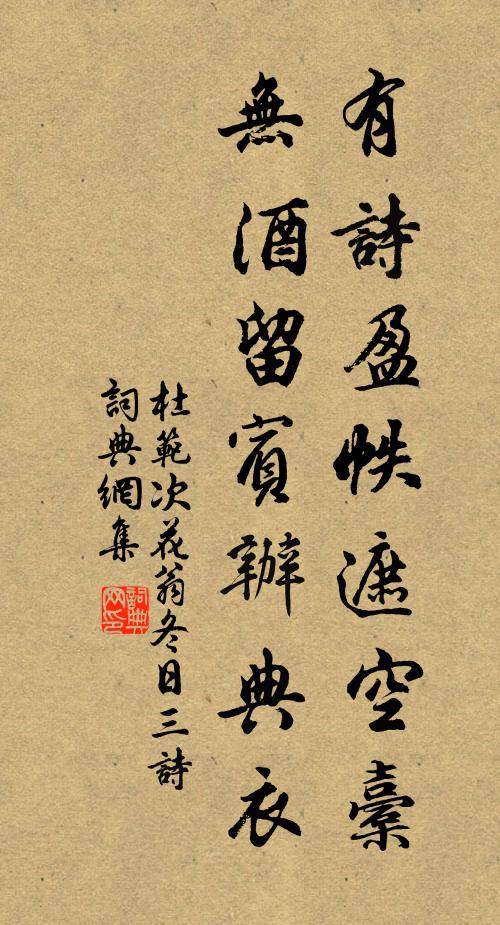 有詩盈帙遮空橐
無酒留賓辦典衣
杜範次花翁冬日三詩
詞典網集
詞典網印